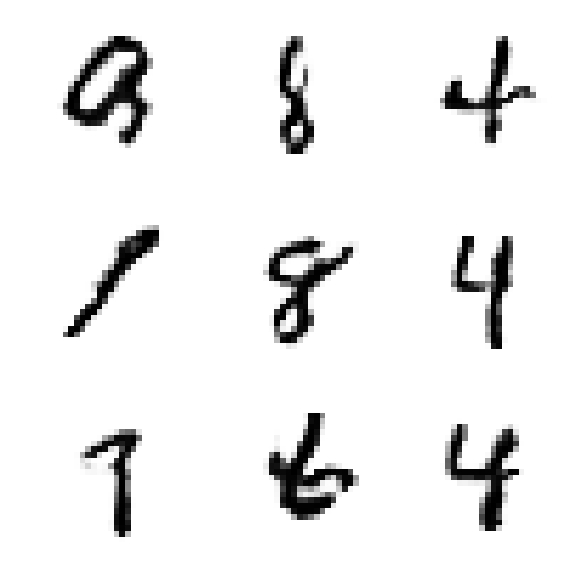 9 8 4
1 8 4
7 6 4